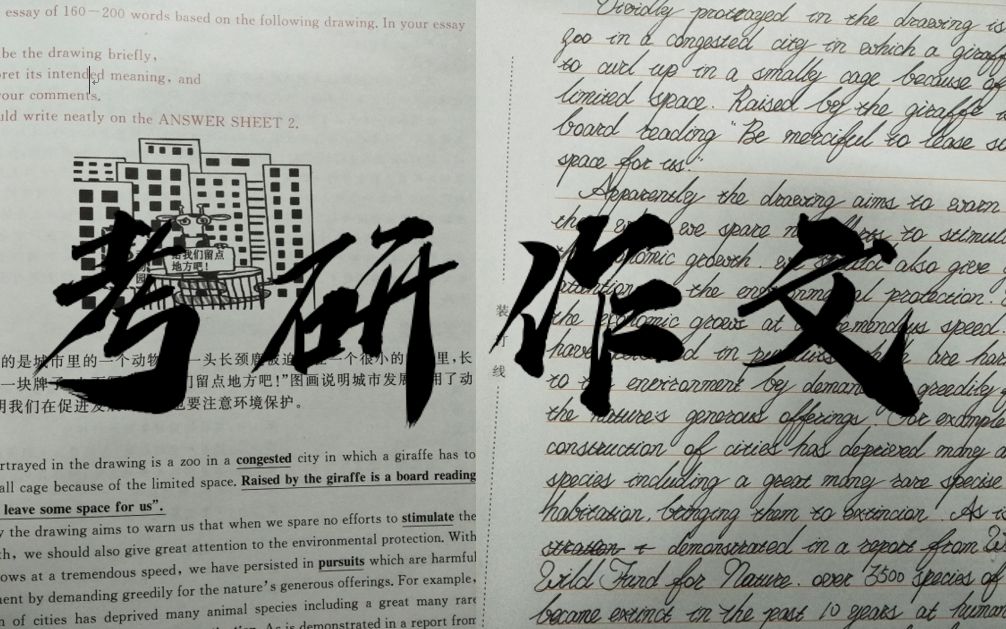 essay of 160－200 words based on the following drawing. In your essay
be the drawing briefly,
pret its intended meaning, and
your comments.
uld write neatly on the ANSWER SHEET 2.
给我们留点
地方吧！
考研作文
的是城市里的一个动物 一头长颈鹿被迫 一个很小的 里，长
一块牌子 们留点地方吧！”图画说明城市发展 用了动
明我们在促进发 也要注意环境保护。
rtrayed in the drawing is a zoo in a congested city in which a giraffe has to
all cage because of the limited space. Raised by the giraffe is a board reading
leave some space for us”.
y the drawing aims to warn us that when we spare no efforts to stimulate the
th, we should also give great attention to the environmental protection. With
ows at a tremendous speed, we have persisted in pursuits which are harmful
ment by demanding greedily for the nature's generous offerings. For example,
n of cities has deprived many animal species including a great many rare
As is demonstrated in a report from
装
订
线
Vividly protrayed in the drawing is
zoo in a congested city in which a giraff
to curl up in a smally cage because of
limited space. Raised by the giraffe is
board reading "Be merciful to lease so
space for us."
Apparently the drawing aims to warn
we spare to stimul
economic growth, we should also give
attention the environmental protection.
the economic grows at tremendous speed
have in which are har
to environment by deman greedily f
the nature's generous offerings. For example
construction of cities has deprived many a
species including a great many rare specise
habitation, bringing them to extincion. As is
demonstrated in a report from
Wild Fund for Nature. over 3500 species of
became extinct in the past 10 years at human